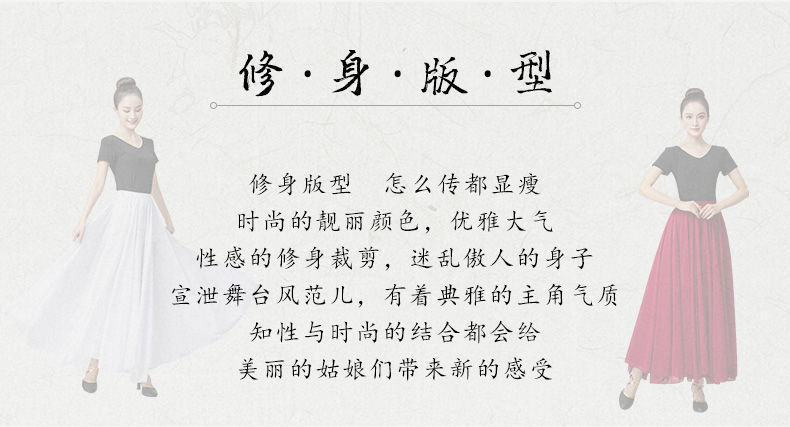 修·身·版·型
修身版型　怎么传都显瘦
时尚的靓丽颜色，优雅大气
性感的修身裁剪，迷乱傲人的身子
宣泄舞台风范儿，有着典雅的主角气质
知性与时尚的结合都会给
美丽的姑娘们带来新的感受